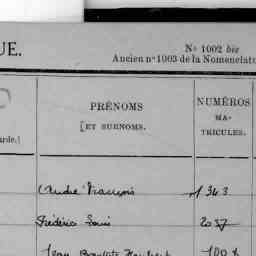 UE.
No 1002 bis
Ancien no 1003 de la Nomenclat
PRÉNOMS
[ET SURNOMS.
NUMÉROS
MA-
TRICULES.
arde.]
André François 1343
Frédéric Louis 2037
Jean Baptiste